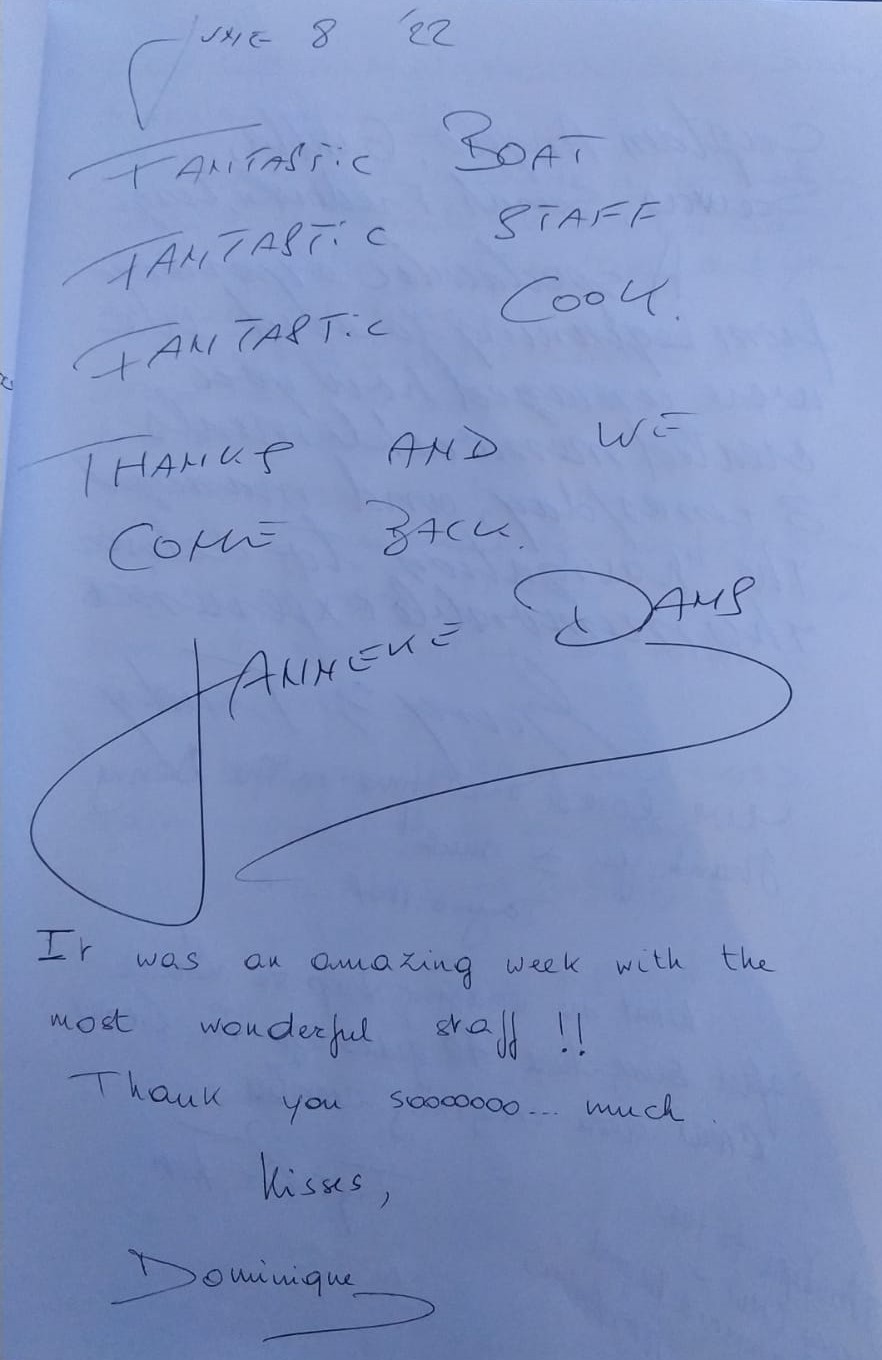 JUNE 8 '22
FANTASTIC BOAT
FANTASTIC STAFF
FANTASTIC COOK.
THANKS AND WE
COME BACK.
JANNEKE DAMS
It was an amazing week with the
most wonderful staff !!
Thank you sooooooo... much.
Kisses,
Dominique